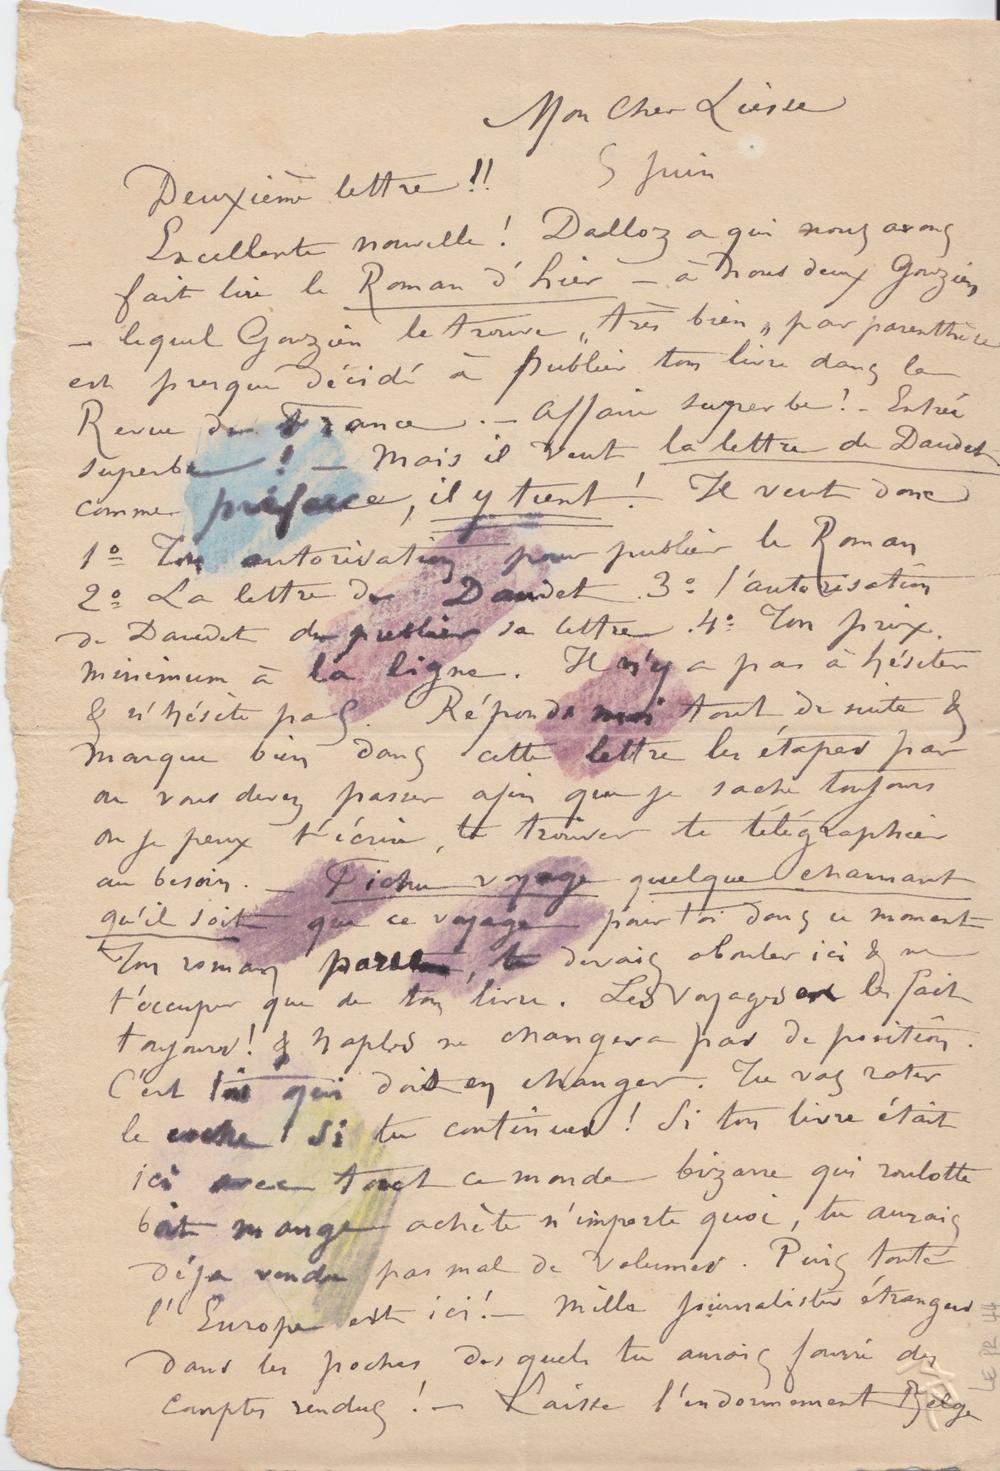 Mon Cher Liesse
5 Juin
Deuxième lettre !!
Excellente nouvelle ! Dalloz a qui nous avons
fait lire le Roman d'hier — à nous deux Gouzien
— lequel Gouzien le trouve „très bien„ par parenthèse
est presque décidé à publier ton livre dans la
Revue de France. — Affaire superbe ! - Entrée
superbe ! — Mais il veut la lettre de Daudet
comme préface, il y tient ! Il veut donc
1º Ton autorisation pour publier le Roman
2º La lettre de Daudet 3º l'autorisation
de Daudet de publier sa lettre. 4º Ton prix.
minimum à la ligne. Il n'y a pas à hésiter
& n'hésite pas. Réponds moi tout de suite &
marque bien dans cette lettre les étapes par
ou vous devez passer afin que je sache toujours
ou je peux t'écrire, te trouver te télégraphier
au besoin. — Fichu voyage quelque charmant
qu'il soit que ce voyage pour toi dans ce moment
Ton roman paru, tu devais abouler ici & ne
t'occuper que de ton livre. Les voyages on les fait
toujours ! & Naples ne changera pas de position.
C'est toi qui doit en changer. Tu vas rater
le coche si tu continues ! Si ton livre était
ici avec tout ce monde bizarre qui roulotte
boit mange achète n'importe quoi, tu aurais
déja vendu pas mal de volumes. Puis toute
l'Europe est ici ! — Mille journalistes étrangers
dans les poches desquels tu aurais fourré des
comptes rendus ! — Laisse l'endormement Belge
LE PR 44